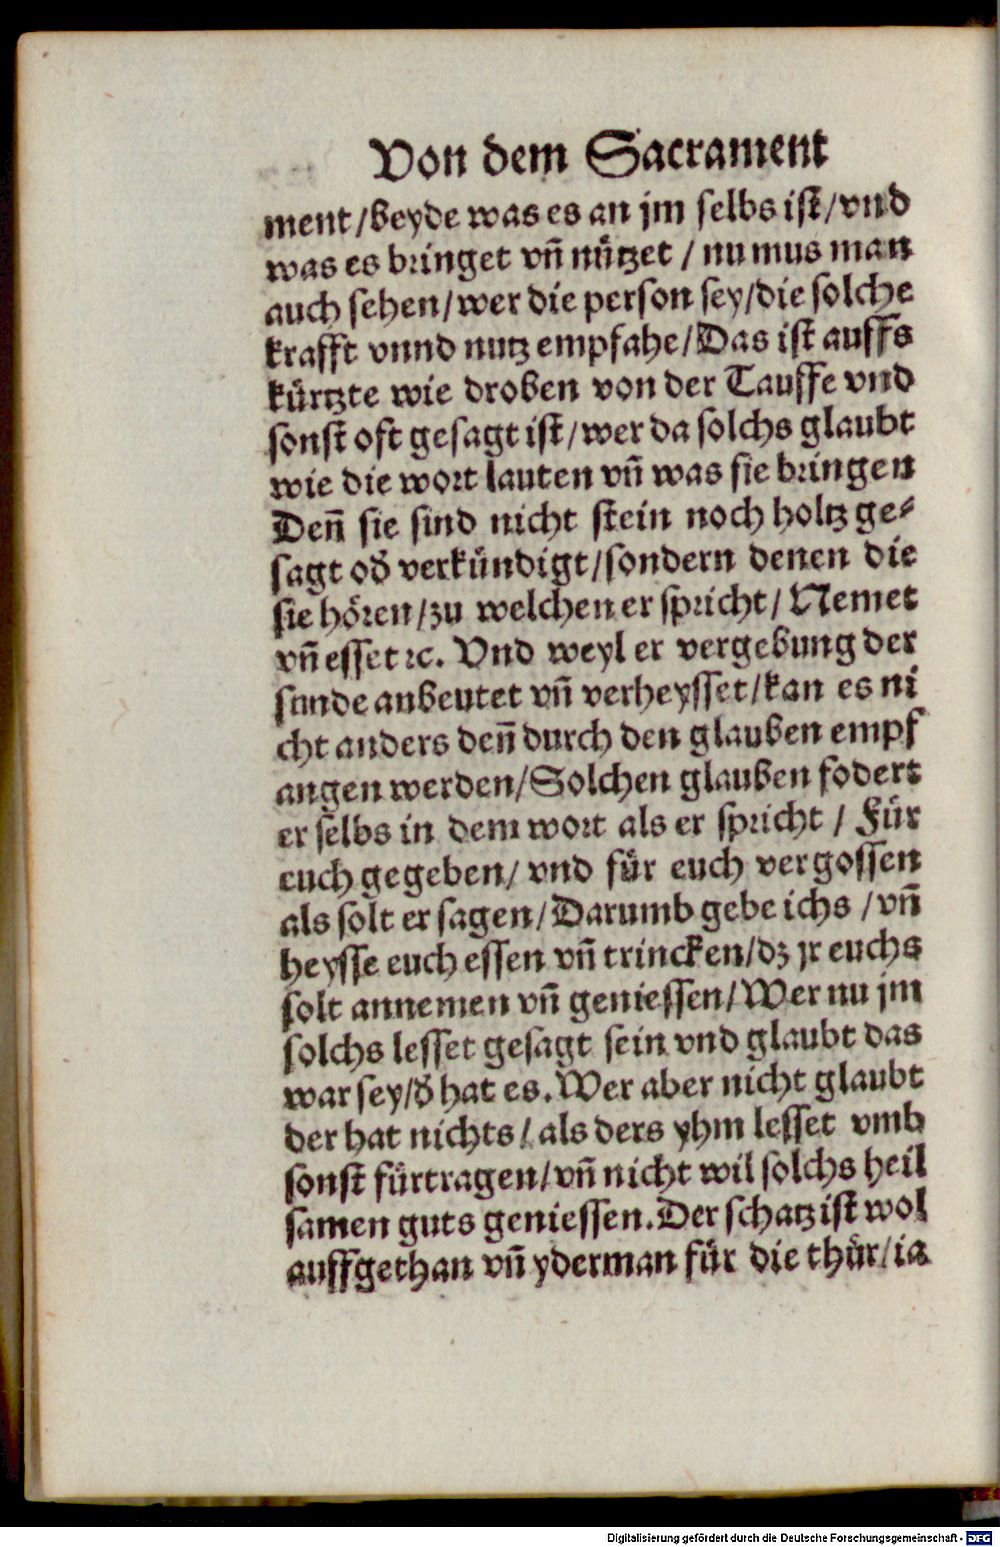 Von dem Sacrament
ment/beyde was es an jm selbs ist/vnd
was es bringet vñ nützet / nu mus man
auch sehen/wer die person sey/die solche
krafft vnnd nutz empfahe/Das ist auffs
kürtzte wie droben von der Tauffe vnd
sonst oft gesagt ist/wer da solchs glaubt
wie die wort lauten vñ was sie bringen
Deñ sie sind nicht stein noch holtz ge⸗
sagt oð verkündigt/sondern denen die
sie hören/zu welchen er spricht/ Nemet
vñ esset ꝛc. Vnd weyl er vergebung der
sunde anbeutet vñ verheysset/kan es ni
cht anders deñ durch den glauben empf
angen werden/Solchen glauben fodert
er selbs in dem wort als er spricht / Für
euch gegeben/ vnd für euch vergossen
als solt er sagen/Darumb gebe ichs /vñ
heysse euch essen vñ trincken/dz jr euchs
solt annemen vñ geniessen/Wer nu jm
solchs lesset gesagt sein vnd glaubt das
war sey/ð hat es. Wer aber nicht glaubt
der hat nichts/ als ders yhm lesset vmb
sonst fürtragen/vñ nicht wil solchs heil
samen guts geniessen. Der schatz ist wol
auffgethan vñ yderman für die thür/ia
Digitalisierung gefördert durch die Deutsche Forschungsgemeinschaft - DFG